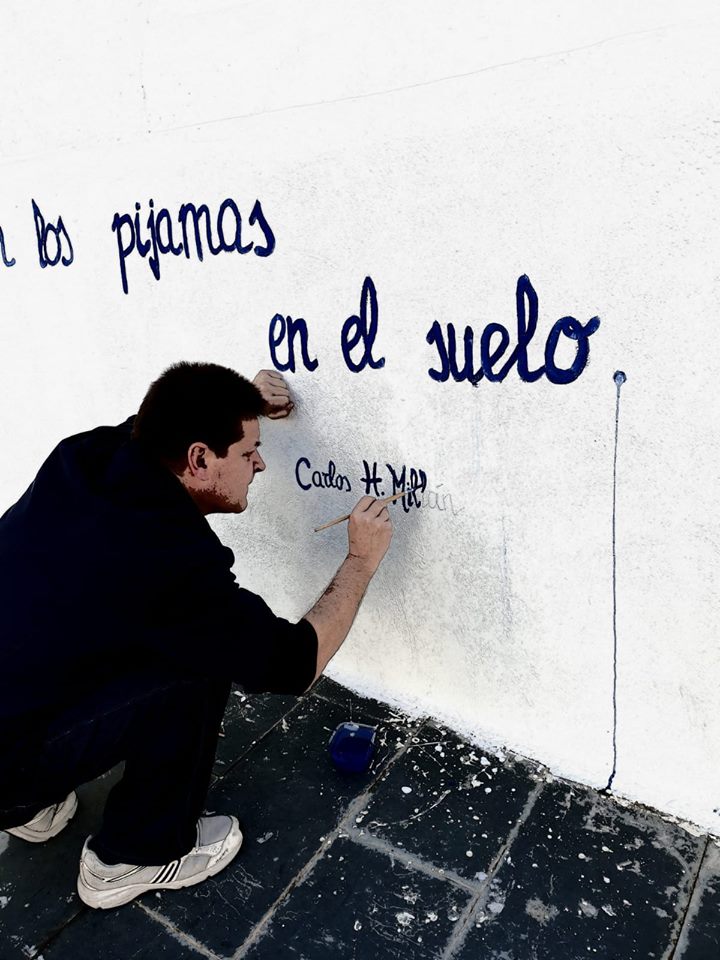 los pijamas
en el suelo.
Carlos H. Millán